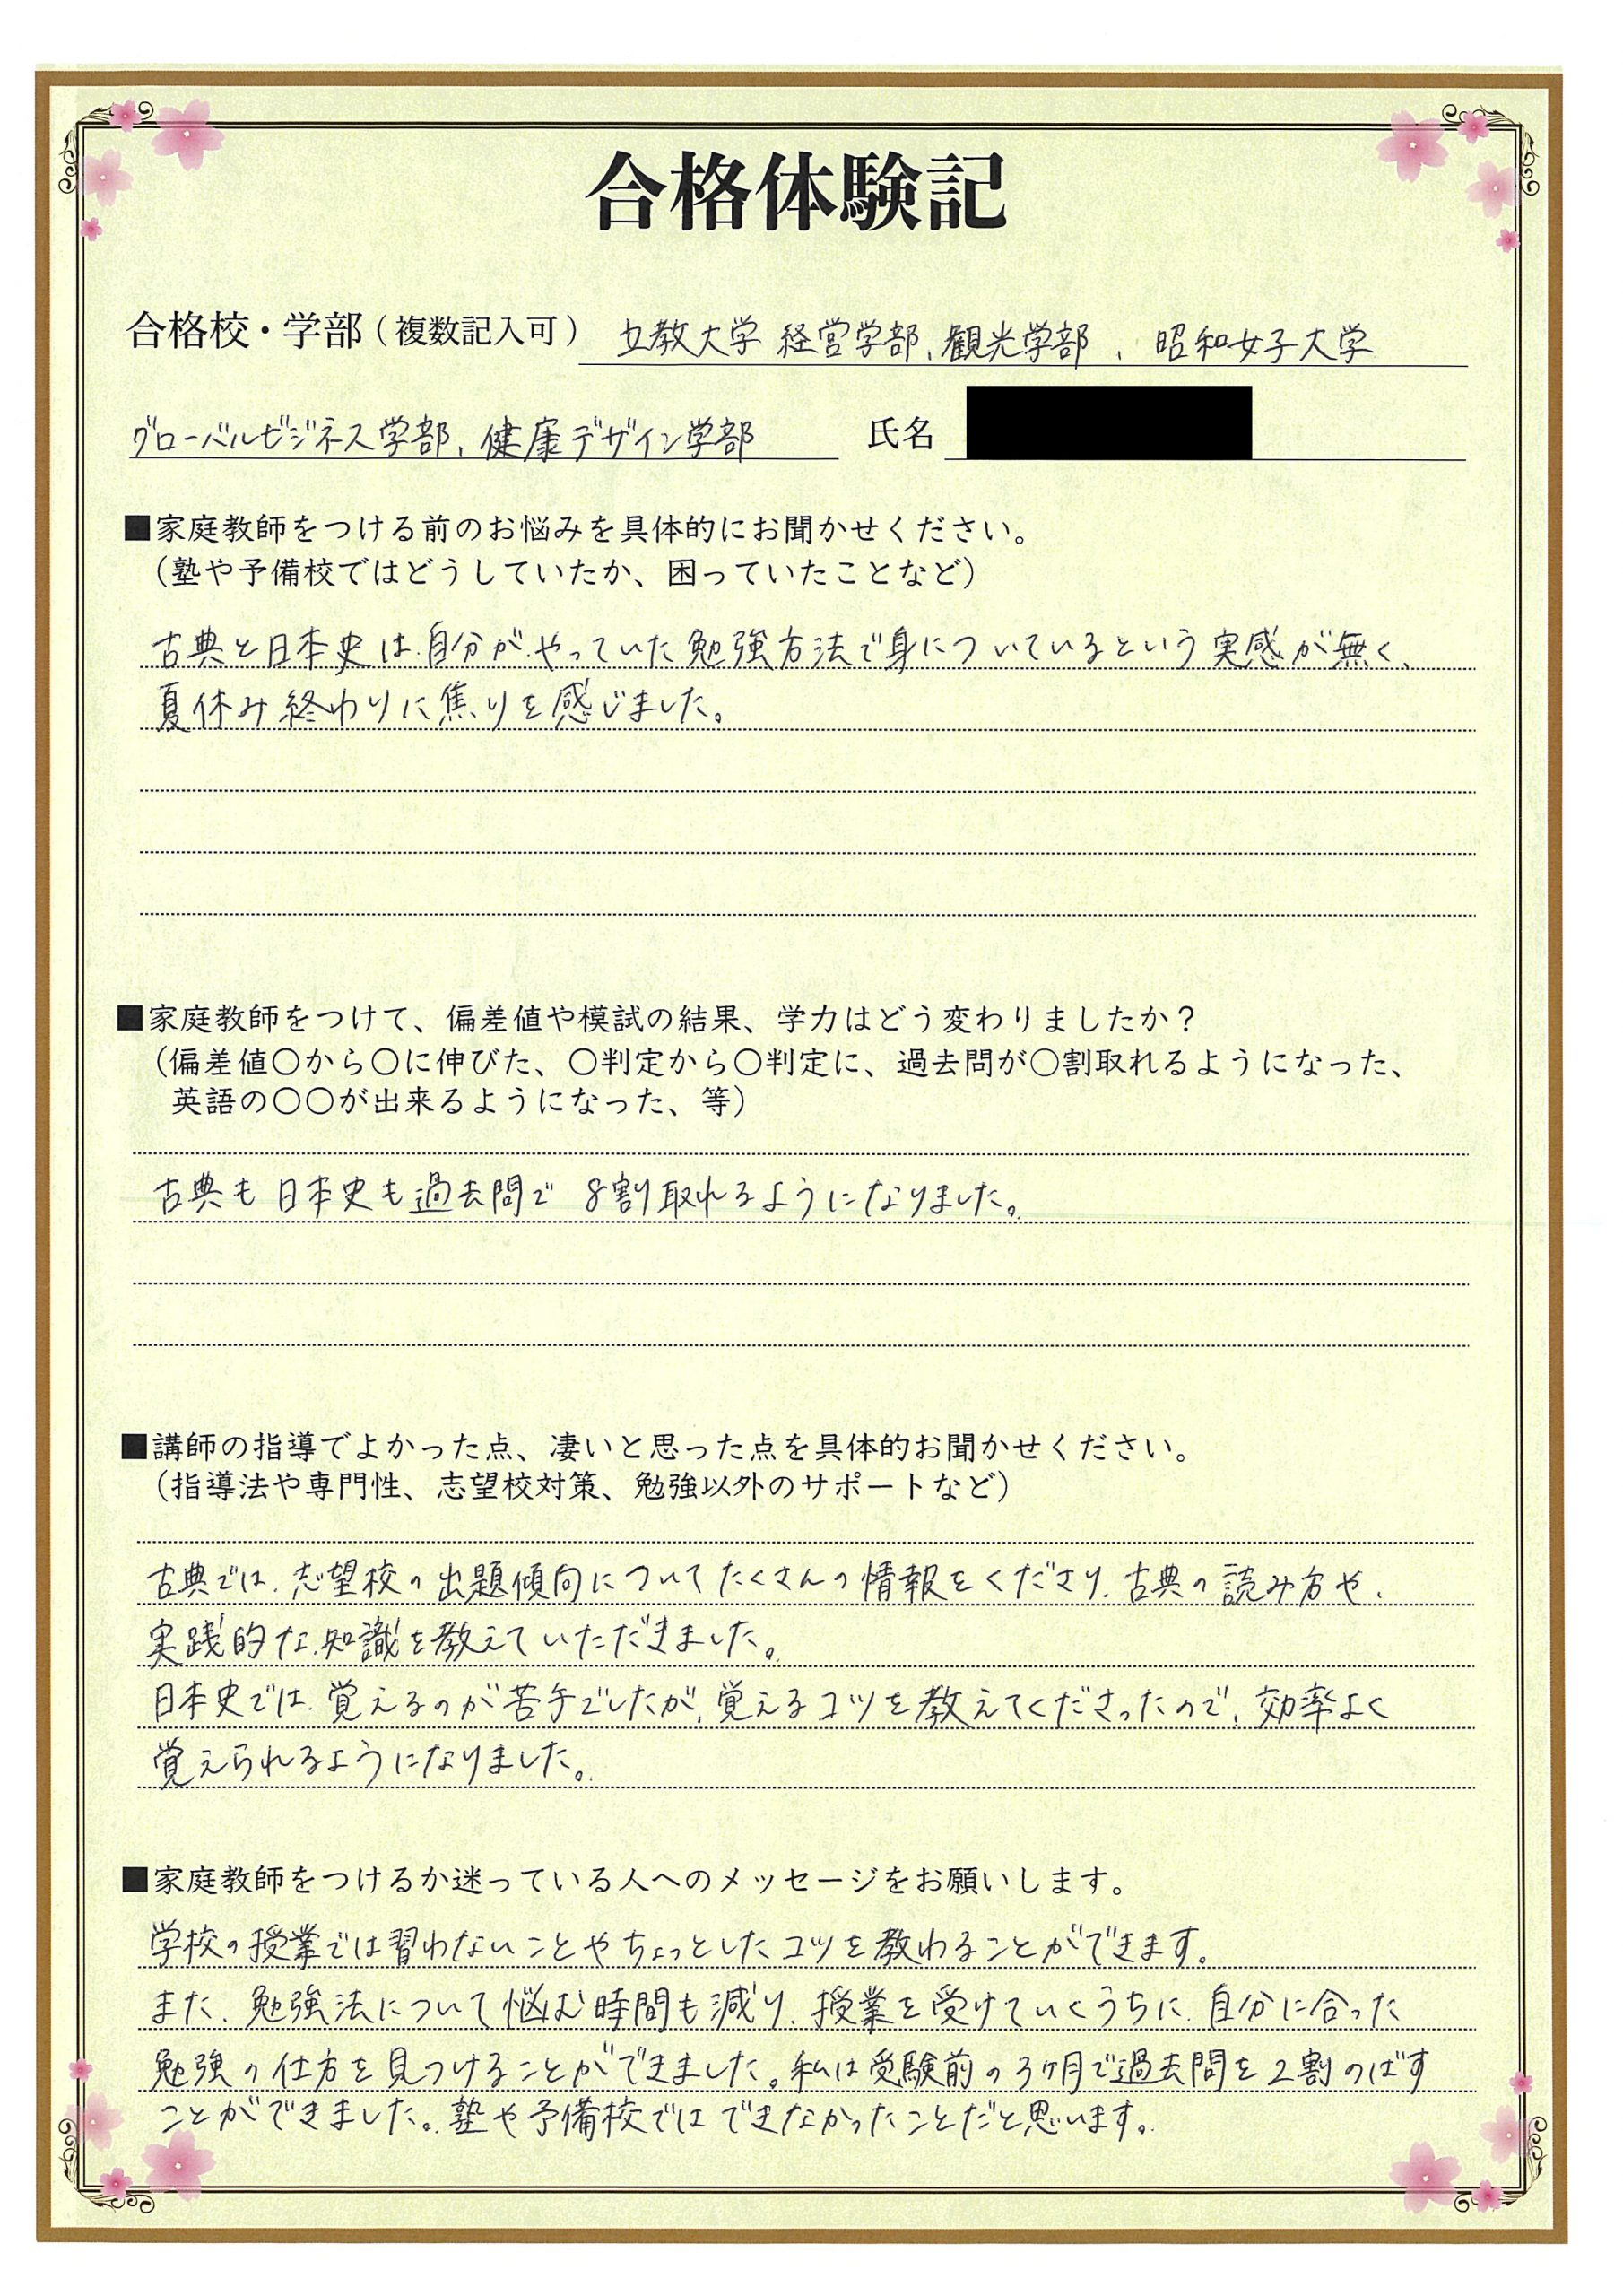 合格体験記
合格校・学部（複数記入可） 立教大学 経営学部、観光学部、昭和女子大学
グローバルビジネス学部、健康デザイン学部 氏名
■家庭教師をつける前のお悩みを具体的にお聞かせください。
（塾や予備校ではどうしていたか、困っていたことなど）
古典と日本史は、自分がやっていた勉強方法で身についているという実感が無く、
夏休み終わりに焦りを感じました。
■家庭教師をつけて、偏差値や模試の結果、学力はどう変わりましたか？
（偏差値〇から〇に伸びた、〇判定から〇判定に、過去問が〇割取れるようになった、
英語の〇〇が出来るようになった、等）
古典も日本史も過去問で8割取れるようになりました。
■講師の指導でよかった点、凄いと思った点を具体的お聞かせください。
（指導法や専門性、志望校対策、勉強以外のサポートなど）
古典では、志望校の出題傾向についてたくさんの情報をくださり、古典の読み方や、
実践的な知識を教えていただきました。
日本史では、覚えるのが苦手でしたが、覚えるコツを教えてくださったので、効率よく
覚えられるようになりました。
■家庭教師をつけるか迷っている人へのメッセージをお願いします。
学校の授業では習わないことやちょっとしたコツを教わることができます。
また、勉強法について悩む時間も減り、授業を受けていくうちに、自分に合った
勉強の仕方を見つけることができました。私は受験前の3ヶ月で過去問を2割のばす
ことができました。塾や予備校ではできなかったことだと思います。